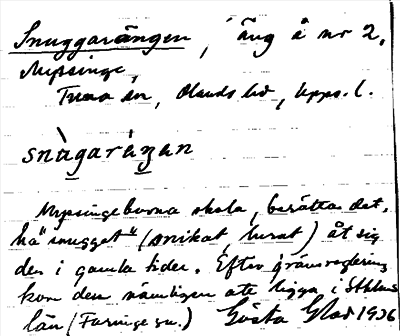 Snuggarängen, äng å nr 2,
Mysinge,
Tuna sn, Olands hd, Upps. l.
snùgaráŋen
Mysingeborna skola, berättas det,
ha "snuggat" (snikat, lurat) åt sig
den i gamla tider. Efter gränsreglering
kom den nämligen att ligga i Sthlms
län (Faringe sn.) Gösta Glad 1936